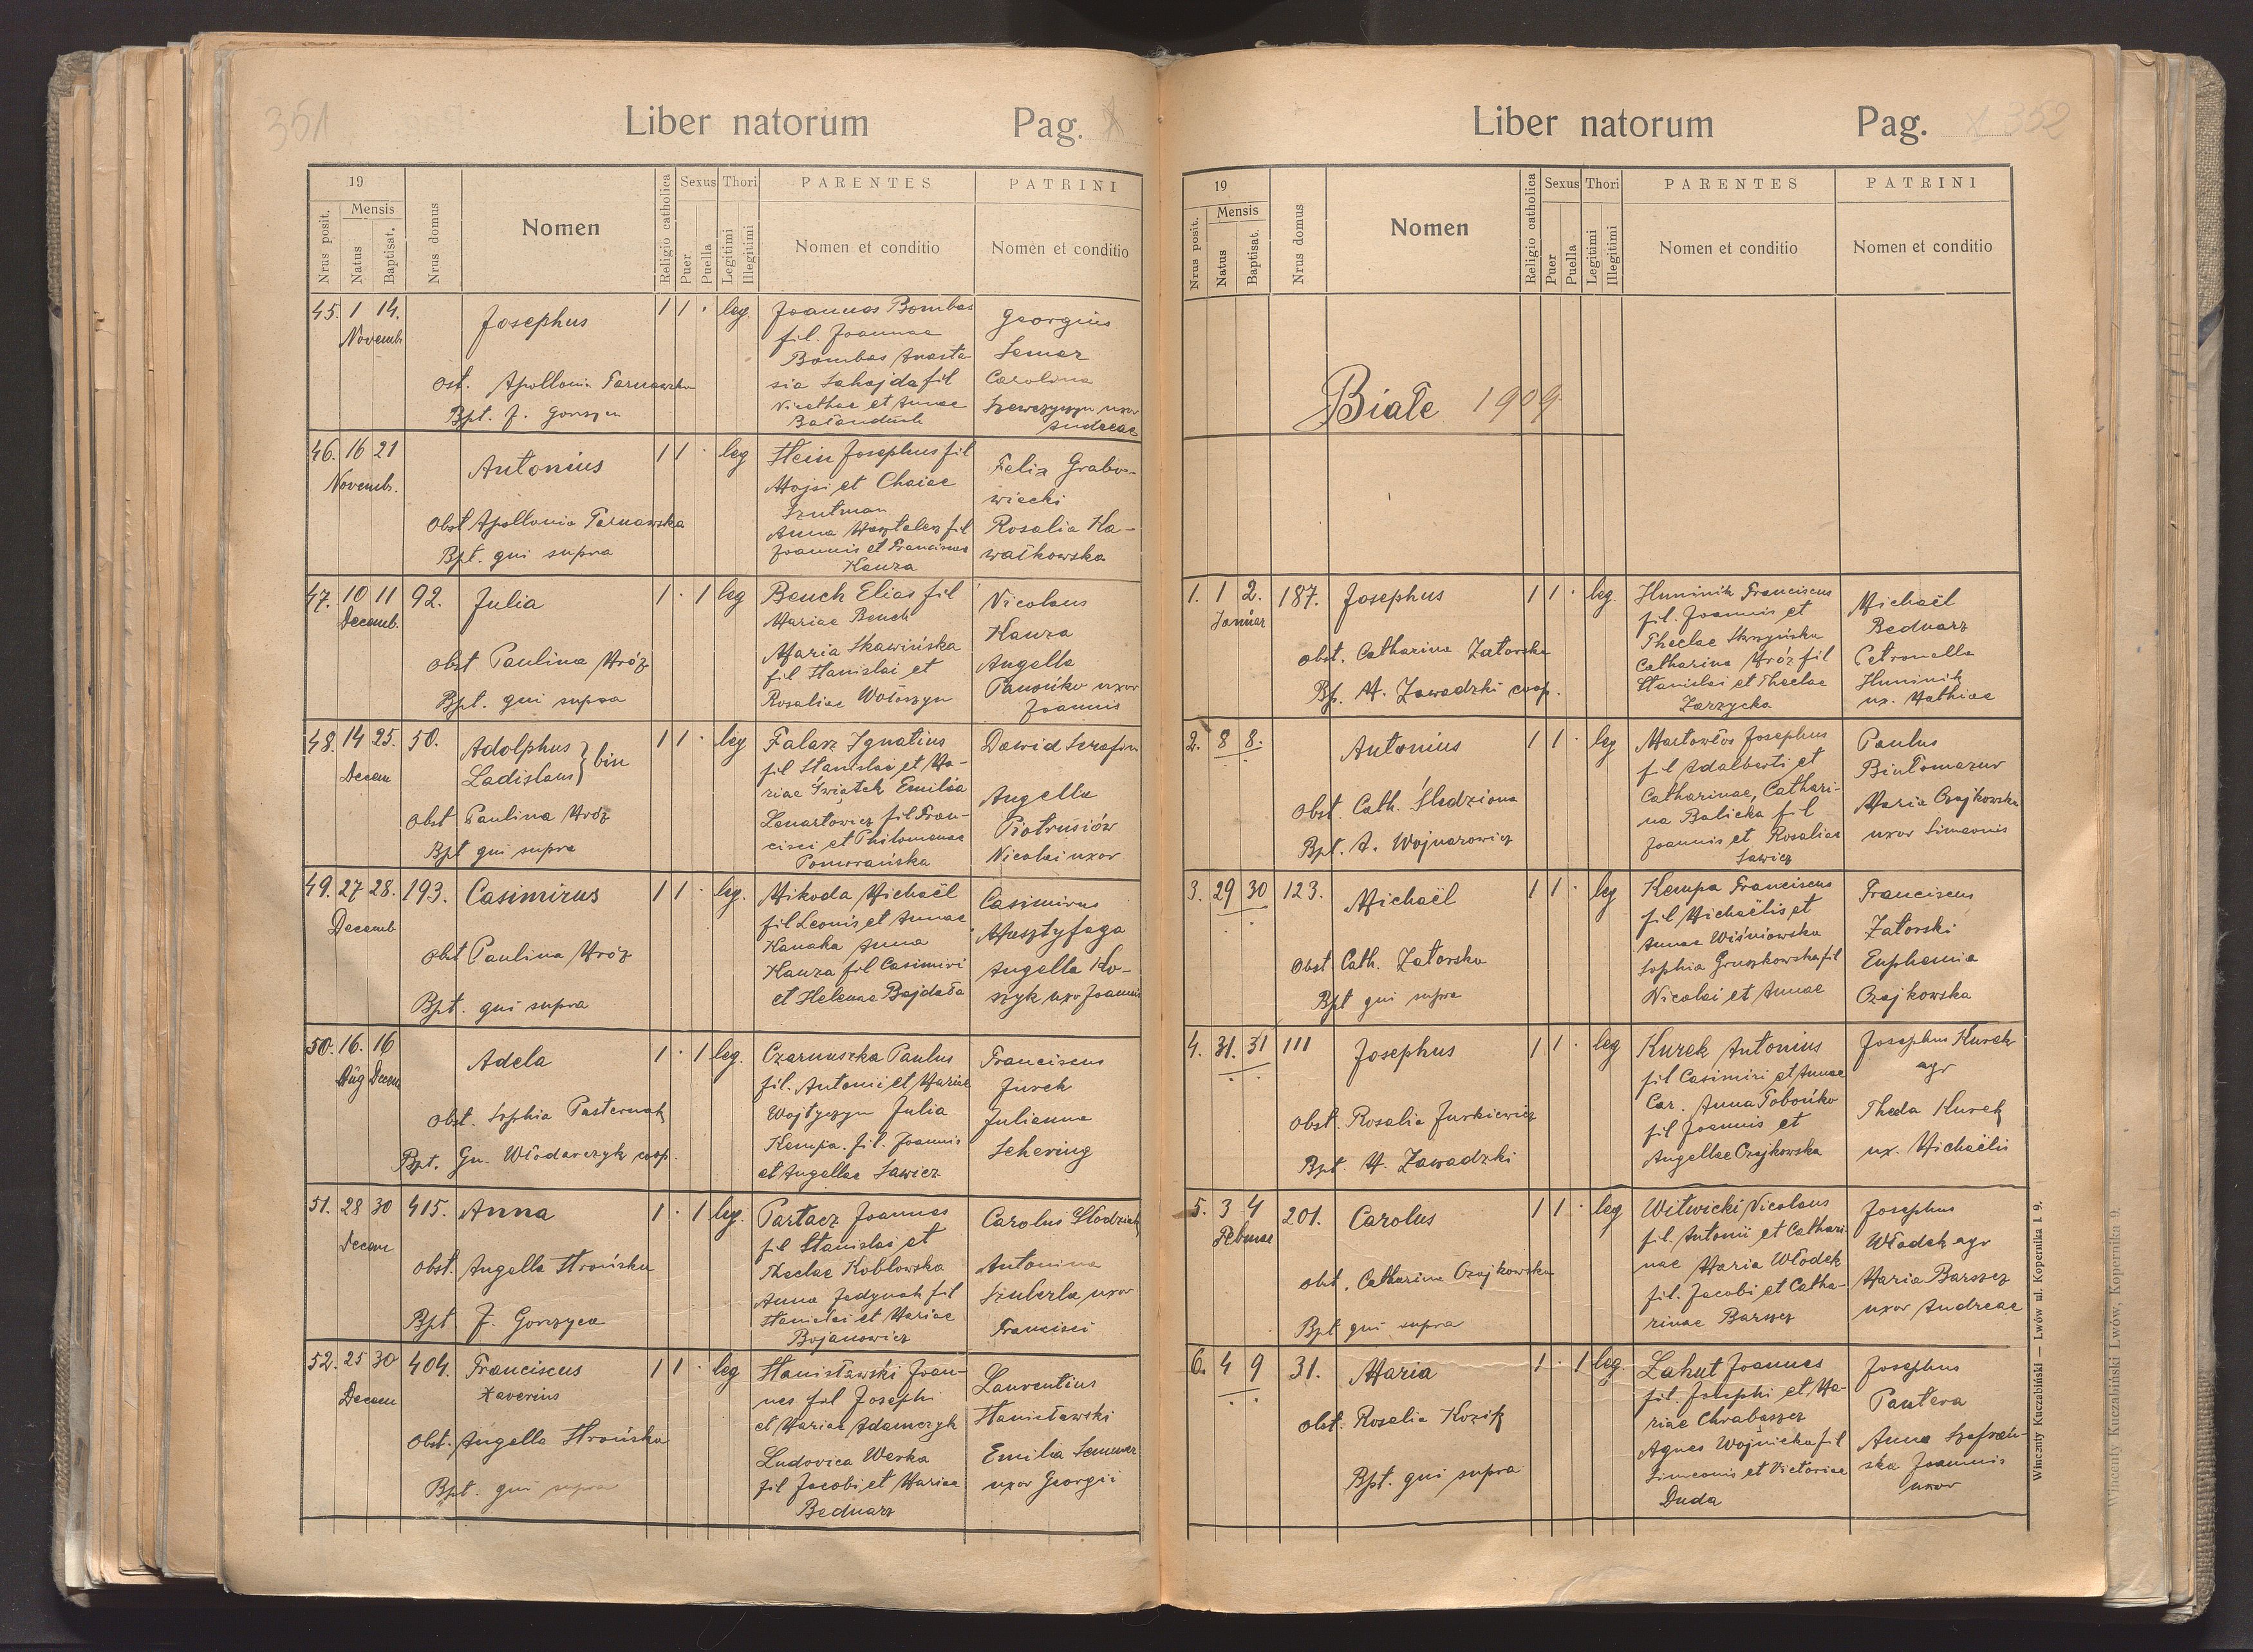 351
Liber natorum Pag.
19
Nrus posit.
Mensis
Natus
Baptisat.
Nrus domus
Nomen
Religio catholica
Sexus
Puer
Puella
Thori
Legitimi
Illegitimi
PARENTES
Nomen et conditio
PATRINI
Nomen et conditio
45. 1 14. Novemb.
Josephus
Obst. Apollonia Tarnawska
Bpt. J. Gorszyca
1 1 · leg
Joannes Bombas
fil. Joannae
Bombas Anasta-
sia Sahajda fil
Nicethae et Annae
Georgius
Semar
Carolina
Szewczyszyn uxor
Andreae
46. 16 21 Novemb.
Antonius
Obst Apollonia Tarnawska
Bpt. qui supra
1 1 · leg
Stein Josephus fil
Mojsi et Chaiae
Szutman
Anna Masztalerz fil
Joannis et Franciscae
Kauza
Felix Grabo-
wiecki
Rosalia Ko-
wałkowska
47. 10 11 Decemb. 92.
Julia
Obst Paulina Mróz
Bpt. qui supra
1 · 1 leg
Bench Elias fil
Mariae Bench
Maria Skawińska
fil Stanislai et
Rosaliae Wołoszyn
Nicolaus
Kauza
Angella
Panońko uxor
Joannis
48. 14 25. Decem 50.
Adolphus
Ladislaus } bin
Obst Paulina Mróz
Bpt qui supra
1 1 · leg
Falarz Ignatius
fil Stanislai et Ma-
riae Świątek Emilia
Lenartowicz fil Fran-
cisci et Philomenae
Pomorańska
Dawid Serafin
Angella
Piotrusiów
Nicolai uxor
49. 27 28. Decemb 193.
Casimirus
Obst Paulina Mróz
Bpt. qui supra
1 1 · leg.
Mikoda Michaël
fil Leonis et Annae
Kanaka Anna
Kauza fil Casimiri
et Helenae Bajdała
Casimirus
Masztyfaga
Angella Ko-
szyk uxor Joannis
50. 16. 16 Aug Decem
Adela
Obst. Sophia Pasternak
Bpt. Gu. Włodarczyk coop.
1 · 1 leg.
Czarnuszka Paulus
fil. Antonii et Mariae
Wojtyczyn Julia
Kempa. fil. Joannis
et Angellae Sawicz
Franciscus
Jurek
Julianna
Schering
51. 28 30 Decem 415.
Anna
Obst. Angella Strońska
Bpt J. Gorszyca
1 · 1 leg.
Partacz Joannes
fil Stanislai et
Theclae Kobłowska
Anna Jedynak fil
Stanislai et Mariae
Bojanowicz
Carolus Słodziak
Antonina
Szuberla uxor
Francisci
52. 25 30 Decem 404.
Franciscus
Xaverius
Obst. Angella Strońska
Bpt. qui supra
1 1 · leg
Stanisławski Joan-
nes fil Josephi
et Mariae Adamczyk
Ludovica Werka
fil Jacobi et Mariae
Bednarz
Laurentius
Stanisławski
Emilia Semmer
uxor Georgii
Liber natorum Pag. 352
19
Nrus posit.
Mensis
Natus
Baptisat.
Nrus domus
Nomen
Religio catholica
Sexus
Puer
Puella
Thori
Legitimi
Illegitimi
PARENTES
Nomen et conditio
PATRINI
Nomen et conditio
Białe 1909
1. 1 2. Januar 187.
Josephus
Obst. Catharina Zatorska
Bp. M. Zawadzki coop.
1 1 · leg.
Huminik Franciscus
fil. Joannis et
Theclae Skrzyńska
Catharina Mróz fil
Stanislai et Theclae
Zarzycka
Michaël
Bednarz
Petronella
Huminik
ux. Mathiae
2. 8 8.
Antonius
Obst. Cath. Śledziona
Bpt. A. Wojnarowicz
1 1 · leg
Martowłos Josephus
fil Adalberti et
Catharinae, Cathari-
na Balicka fil
Joannis et Rosaliae
Sawicz
Paulus
Białomazur
Maria Czajkowska
uxor Simeonis
3. 29 30 123.
Michaël
Obst Cath. Zatorska
Bpt qui supra
1 1 · leg
Kempa Franciscus
fil Michaëlis et
Annae Wiśniowska
Sophia Gruszkowska fil
Nicolai et Annae
Franciscus
Zatorski
Euphemia
Czajkowska
4. 31. 31 111
Josephus
Obst. Rosalia Jurkiewicz
Bpt. M. Zawadzki
1 1 · leg
Kurek Antonius
fil Casimiri et Annae
Car. Anna Tobońko
fil Joannis et
Angellae Czajkowska
Josephus Kurek
agr
Thecla Kurek
ux. Michaëlis
5. 3 4 Februar 201.
Carolus
Obst. Catharina Czajkowska
Bpt qui supra
1 1 · leg
Witwicki Nicolaus
fil. Antonii et Cathari
nae Maria Włodek
fil. Jacobi et Catha-
rinae Barszcz
Josephus
Włodek agr
Maria Barszcz
uxor Andreae
6. 4 9 31.
Maria
Obst. Rosalia Kozik
Bpt. qui supra
1 · 1 leg.
Lahut Joannes
fil. Josephi et Ma-
riae Chrabąszcz
Agnes Wojnicka fil
Simeonis et Victoriae
Duda
Josephus
Pantera
Anna Szafrań-
ska Joannis
uxor
Wincenty Kuczabiński — Lwów ul. Kopernika l. 9.
Wincenty Kuczabiński Lwów, Kopernika 9.